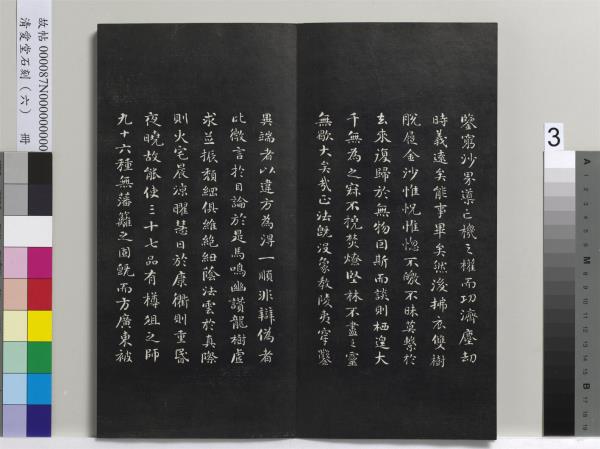 鑒窮沙界導亡機之權而功濟塵劫
時義遠矣能事畢矣然後拂衣雙樹
脫屣金沙惟怳惟惚不皦不昧莫繫於
去來復歸於無物因斯而談則棲遑大
千無為之寂不撓焚燎堅林不盡之靈
無歇大矣哉正法既没象教陵夷穿鑿
異端者以違方為得一順非辯偽者
比微言於目論於是馬鳴幽讚龍樹虛
求並振頹綱俱維絕紐蔭法雲於真際
則火宅晨涼曜慧日於康衢則重昏
夜曉故能使三十七品有樽俎之師
九十六種無藩籬之固既而方廣東被
故帖 000087N000000000
清愛堂石刻（六） 冊
3
A
M
B